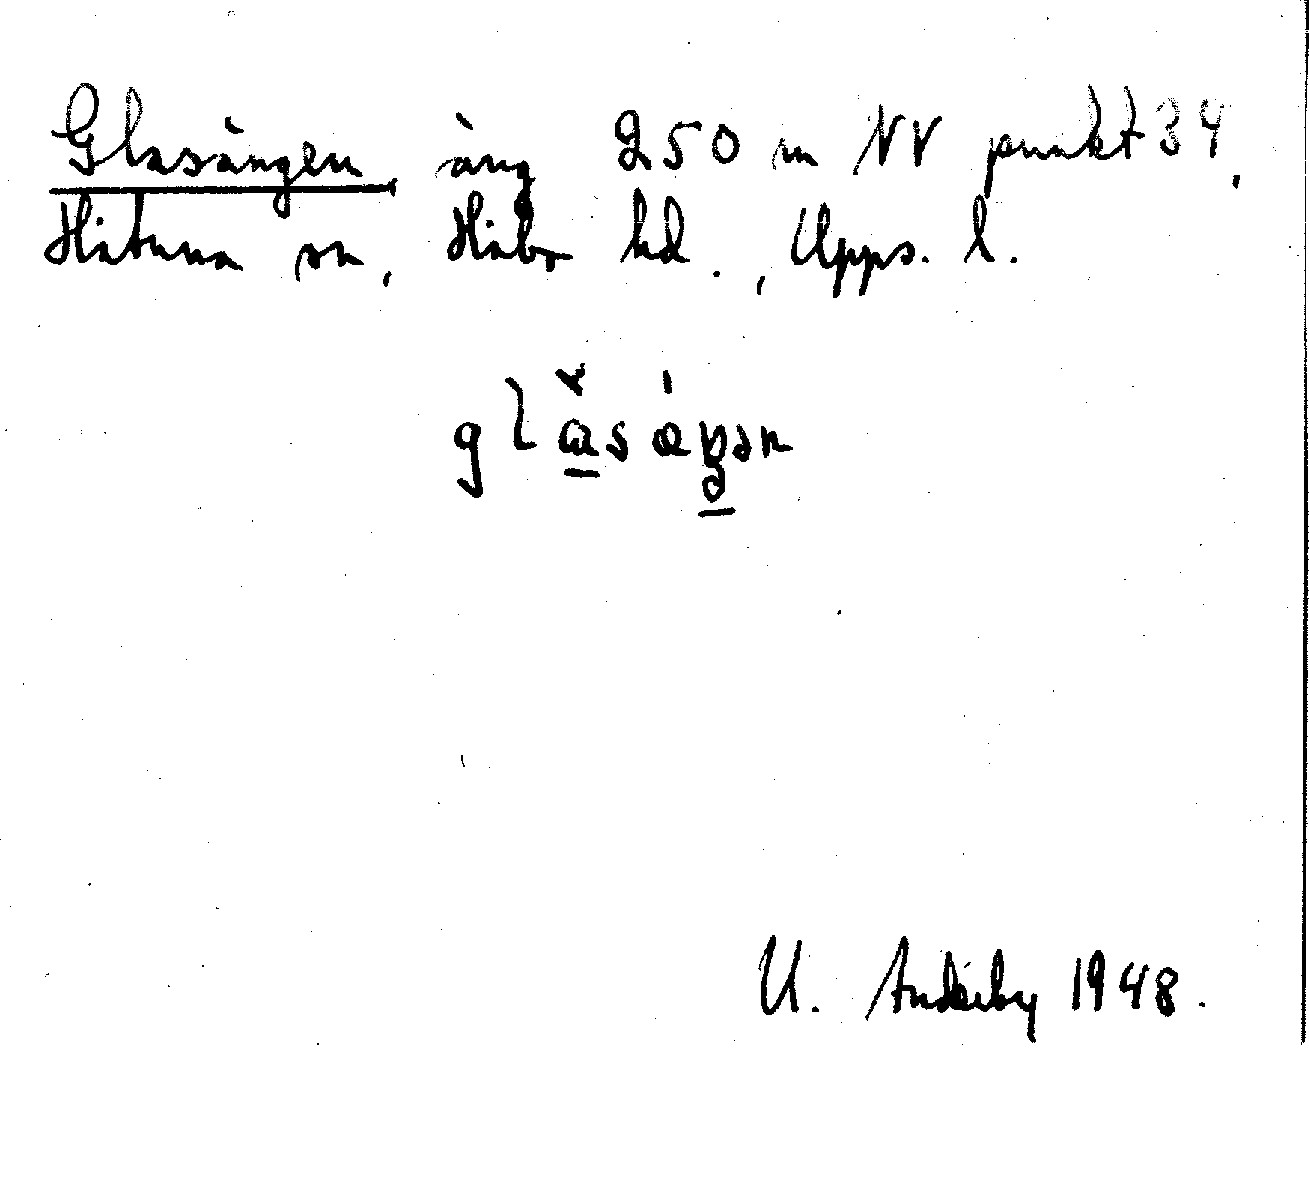 Glasängen äng 250 m NV punkt 34,
Håtuna sn, Håbo hd., Upps. l.
U. Andérby 1948.